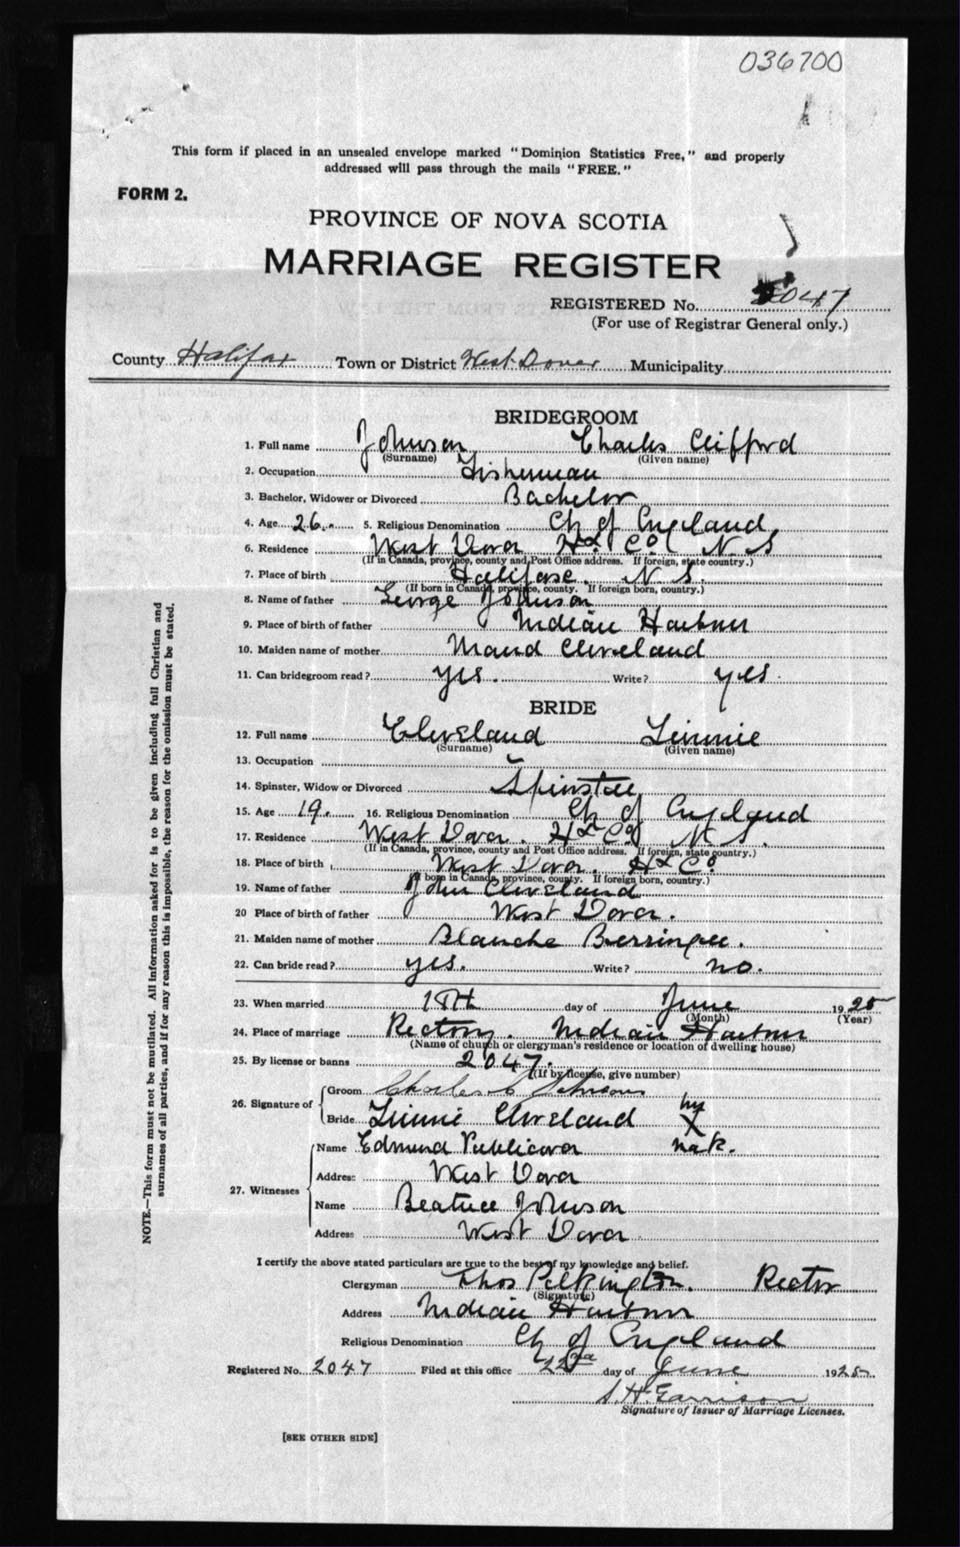 036700
This form if placed in an unsealed envelope marked "Dominion Statistics Free," and properly
addressed will pass through the mails "FREE."
FORM 2.
PROVINCE OF NOVA SCOTIA
MARRIAGE REGISTER
REGISTERED No. 2047
(For use of Registrar General only.)
County Halifax Town or District West Dover Municipality
BRIDEGROOM
1. Full name Johnson Charles Clifford
(Surname) (Given name)
2. Occupation Fisherman
3. Bachelor, Widower or Divorced Bachelor
4. Age 26. 5. Religious Denomination Ch of England
6. Residence West Dover Hx Co. N S
(If in Canada, province, county and Post Office address. If foreign, state country.)
7. Place of birth Halifax. N S.
(If born in Canada, province, county. If foreign born, country.)
8. Name of father George Johnson
9. Place of birth of father Indian Harbour
10. Maiden name of mother Maud Cleveland
11. Can bridegroom read? yes. Write? yes.
BRIDE
12. Full name Cleveland Linnie
(Surname) (Given name)
13. Occupation –
14. Spinster, Widow or Divorced Spinster
15. Age 19. 16. Religious Denomination Ch of England
17. Residence West Dover. Hx Co N S.
(If in Canada, province, county and Post Office address. If foreign, state country.)
18. Place of birth West Dover Hx Co
(If born in Canada, province, county. If foreign born, country.)
19. Name of father John Cleveland
20 Place of birth of father West Dover.
21. Maiden name of mother Blanche Berringer.
22. Can bride read? yes. Write? no.
23. When married day of June 1925
(Month) (Year)
24. Place of marriage Rectory. Indian Harbour
(Name of church or clergyman's residence or location of dwelling house)
25. By license or banns 2047.
(If by license, give number)
26. Signature of
Groom Charles C Johnson
Bride Linnie Cleveland her X mark.
27. Witnesses
Name Edmund Publicover
Address West Dover
Name Beatrice Johnson
Address West Dover
I certify the above stated particulars are true to the best of my knowledge and belief.
Clergyman Thos Pilkington. Rector
(Signature)
Address Indian Harbour
Religious Denomination Ch of England
Registered No. 2047 Filed at this office 22nd day of June 1925.
S.H. Garrison
Signature of Issuer of Marriage Licenses.
[SEE OTHER SIDE]
NOTE.—This form must not be mutilated. All information asked for is to be given including full Christian and
surnames of all parties, and if for any reason this is impossible, the reason for the omission must be stated.